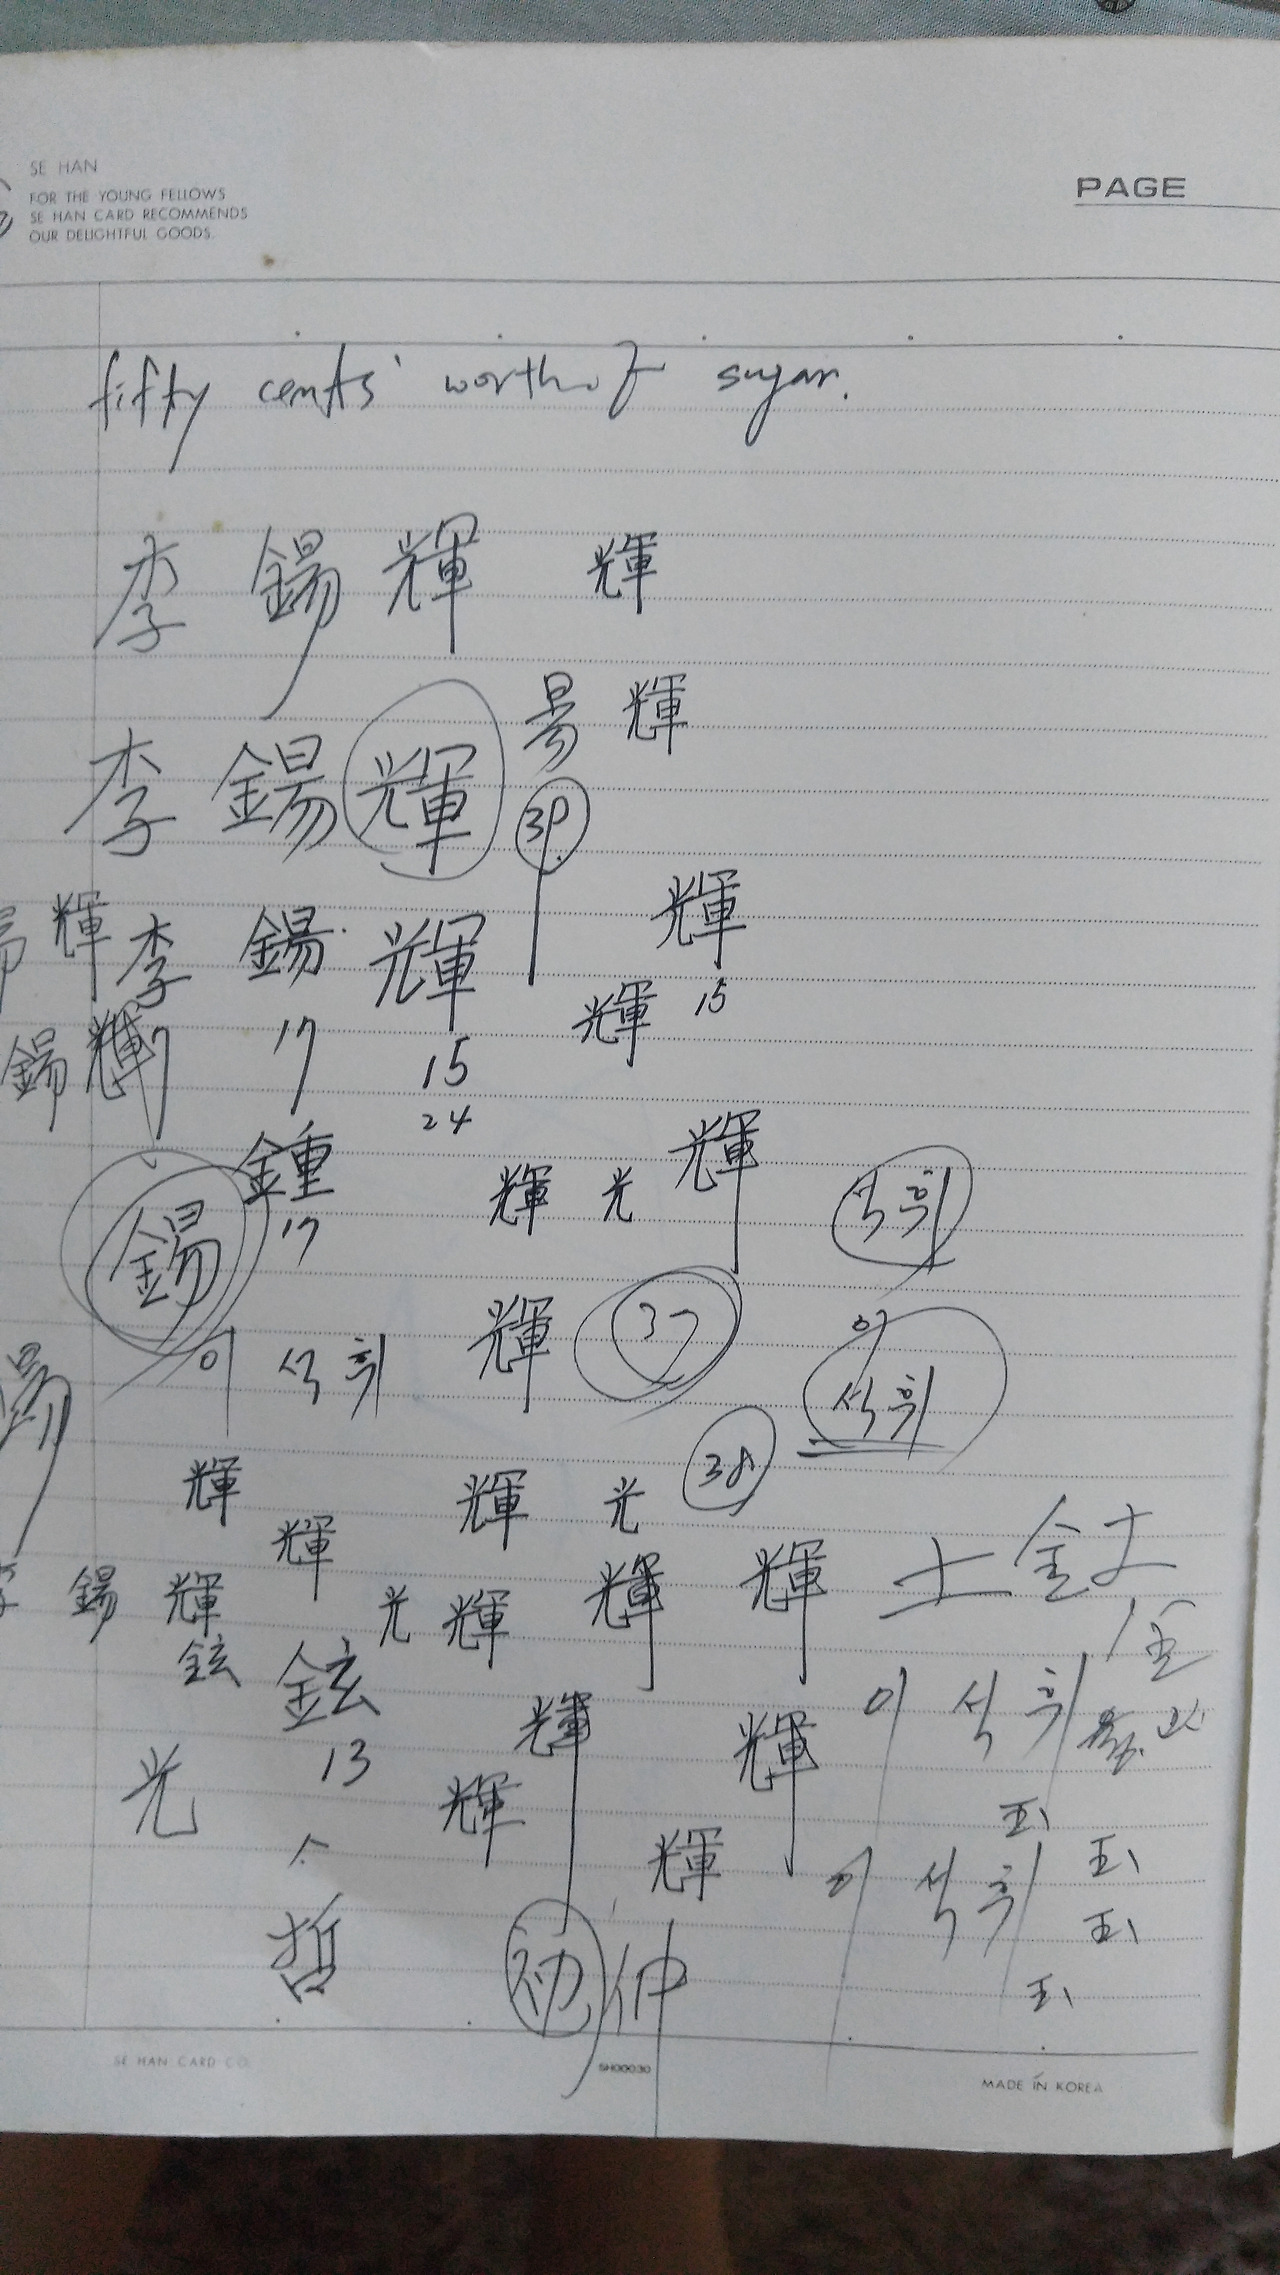 SE HAN
FOR THE YOUNG FELLOWS
SE HAN CARD RECOMMENDS
OUR DELIGHTFUL GOODS.
PAGE
fifty cents' worth of sugar.
李 錫 輝 輝
易 輝
李 錫 輝
輝 李 錫 輝 輝
輝 15
錫 輝 17 15
24
鍾 輝
輝 光 석휘
錫 17
輝 37 이
이 석 휘 석휘
輝 輝 光 38
輝
錫 輝 光 輝 輝 輝 士 金 士
鉉 鉉 金
13 輝 輝 이 석 휘
光 輝 王
人 輝 이 석 휘 王
哲 王
仲 王
SE HAN CARD CO.
SH00030
MADE IN KOREA